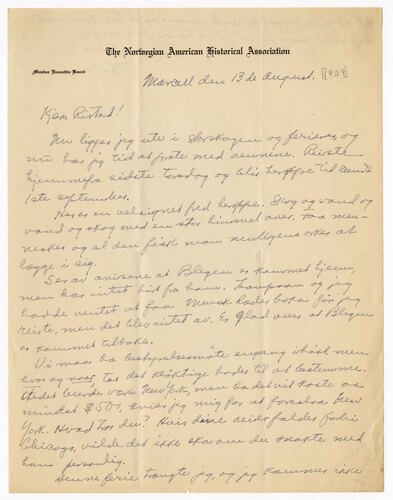 The Norwegian American Historical Association
Member Executive Board
Marcell den 13de August. [1929]
Kjære Ristad!
Nu ligger jeg ute i Storskogen og ferierer, og
nu har jeg tid at prate med vennene. Reiste
hjemmefra sidste Torsdag og blir heroppe til rundt
1ste september.
Her er en velsignet fred heroppe. Skog og vand og
vand og skog med en stor himmel over. Faa men-
nesker og al den fisk man muligens orker at
lægge i sig.
Ser av avisene at Blegen er kommet hjem,
men har intet hørt fra ham. Thompson og jeg
hadde ventet at faa bokа før jeg
reiste, men det blev intet av. Er glad over at Blegen
er kommet tilbake.
Vi maa ha bestyrelsesmøte engang ihøst, men
hvor og naar, tør det gjøres til at bestemme.
Stedet burde være New York, men da det vil koste os
mindst $500, kvier jeg mig for at foreslaa New
York. Hvad tror du? Hvis dine veier falder forbi
Chicago, vilde det ikke skade om du snakte med
ham personlig.
Denne ferie trængte jeg, og jeg kommer ikke